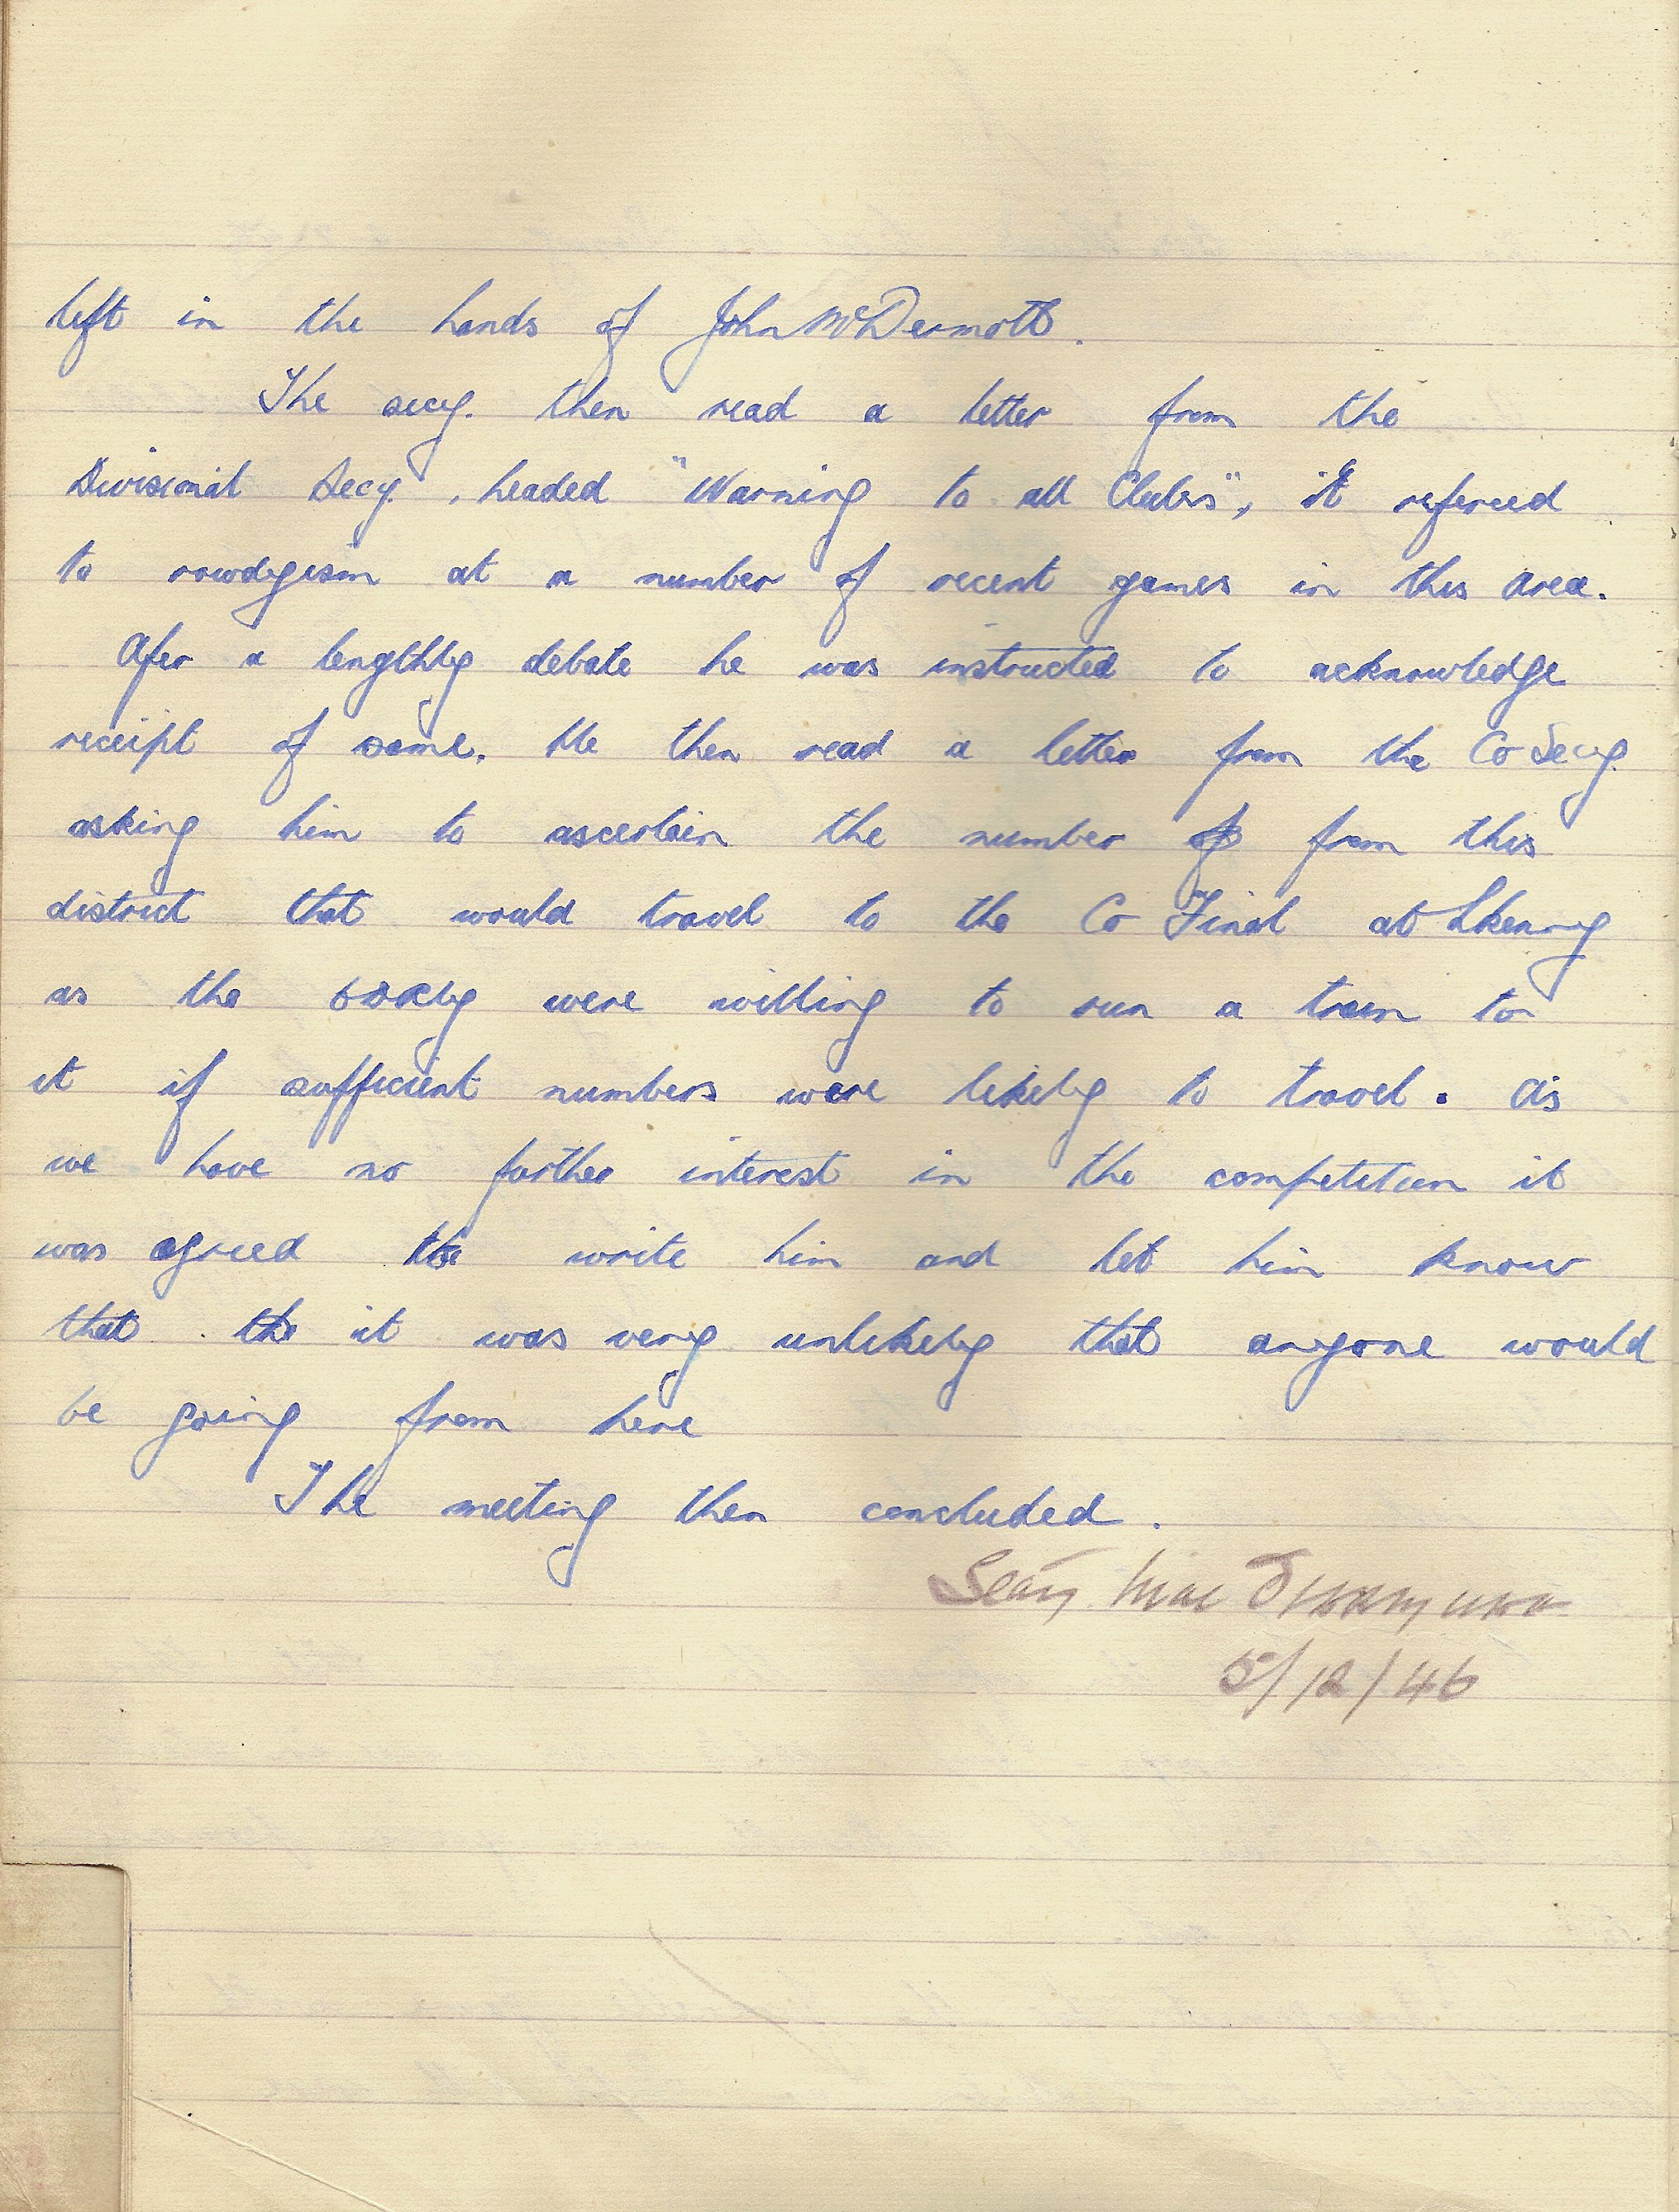 left in the hands of John McDermott.
The secy. then read a letter from the
Divisional Secy. headed "Warning to all Clubs", it refered
to rowdyism at a number of recent games in this area.
Afer a lengthly debate he was instructed to acknowledge
receipt of same. He then read a letter from the Co Secy.
asking him to ascertain the number of from this
district that would travel to the Co Final at Lkenny
as the were willing to run a train to
it if sufficient numbers were likely to travel. As
we have no further interest in the competition it
was agreed to write him and let him know
that the it was very unlikely that anyone would
be going from here
The meeting then concluded.
Seán Mac
5/12/46